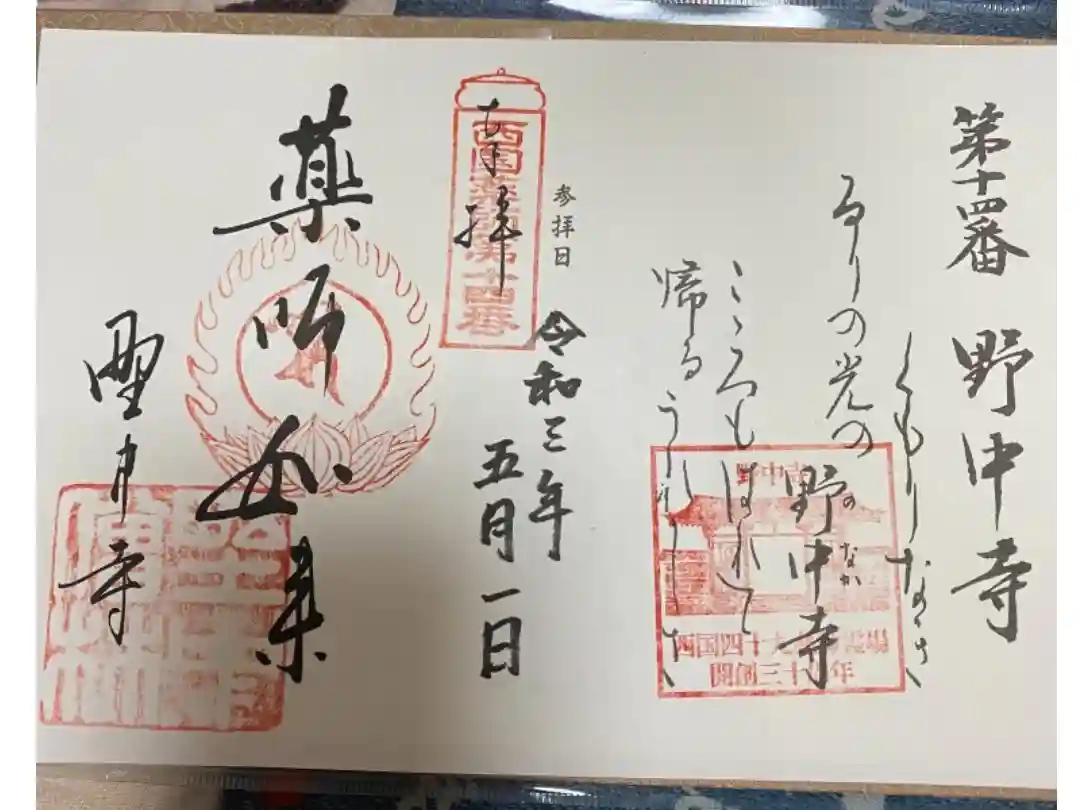 第十四番 野中寺
くもりなき
るりの光の
野中寺
の なか
こゝろもはれて
帰るうれしさ
野中寺
西国四十九霊場
開創三十年
参拝日
令和三年
五月一日
奉拝
西国薬師第十四番
薬師如来
野中寺